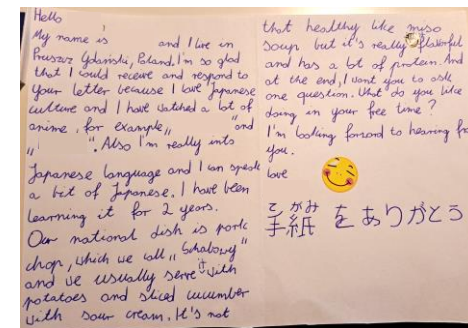 Hello
My name is and I live in
Pruszcz Gdański, Poland. I'm so glad
that I could receive and respond to
your letter because I love Japanese
culture and I have watched a lot of
anime, for example,, "and
". Also I'm really into
Japanese language and I can speak
a bit of Japanese. I have been
learning it for 2 years.
Our national dish is pork
chop, which we call ,,Schabowy"
and we usually serve it with
potatoes and sliced cucumber
with sour cream. It's not
that healthy like miso
soup but it's really flavorful
and has a lot of protein. And
at the end, I want you to ask
one question. What do you like
doing in your free time?
I'm looking forward to hearing fro
you.
love
てがみ
手紙をありがとう